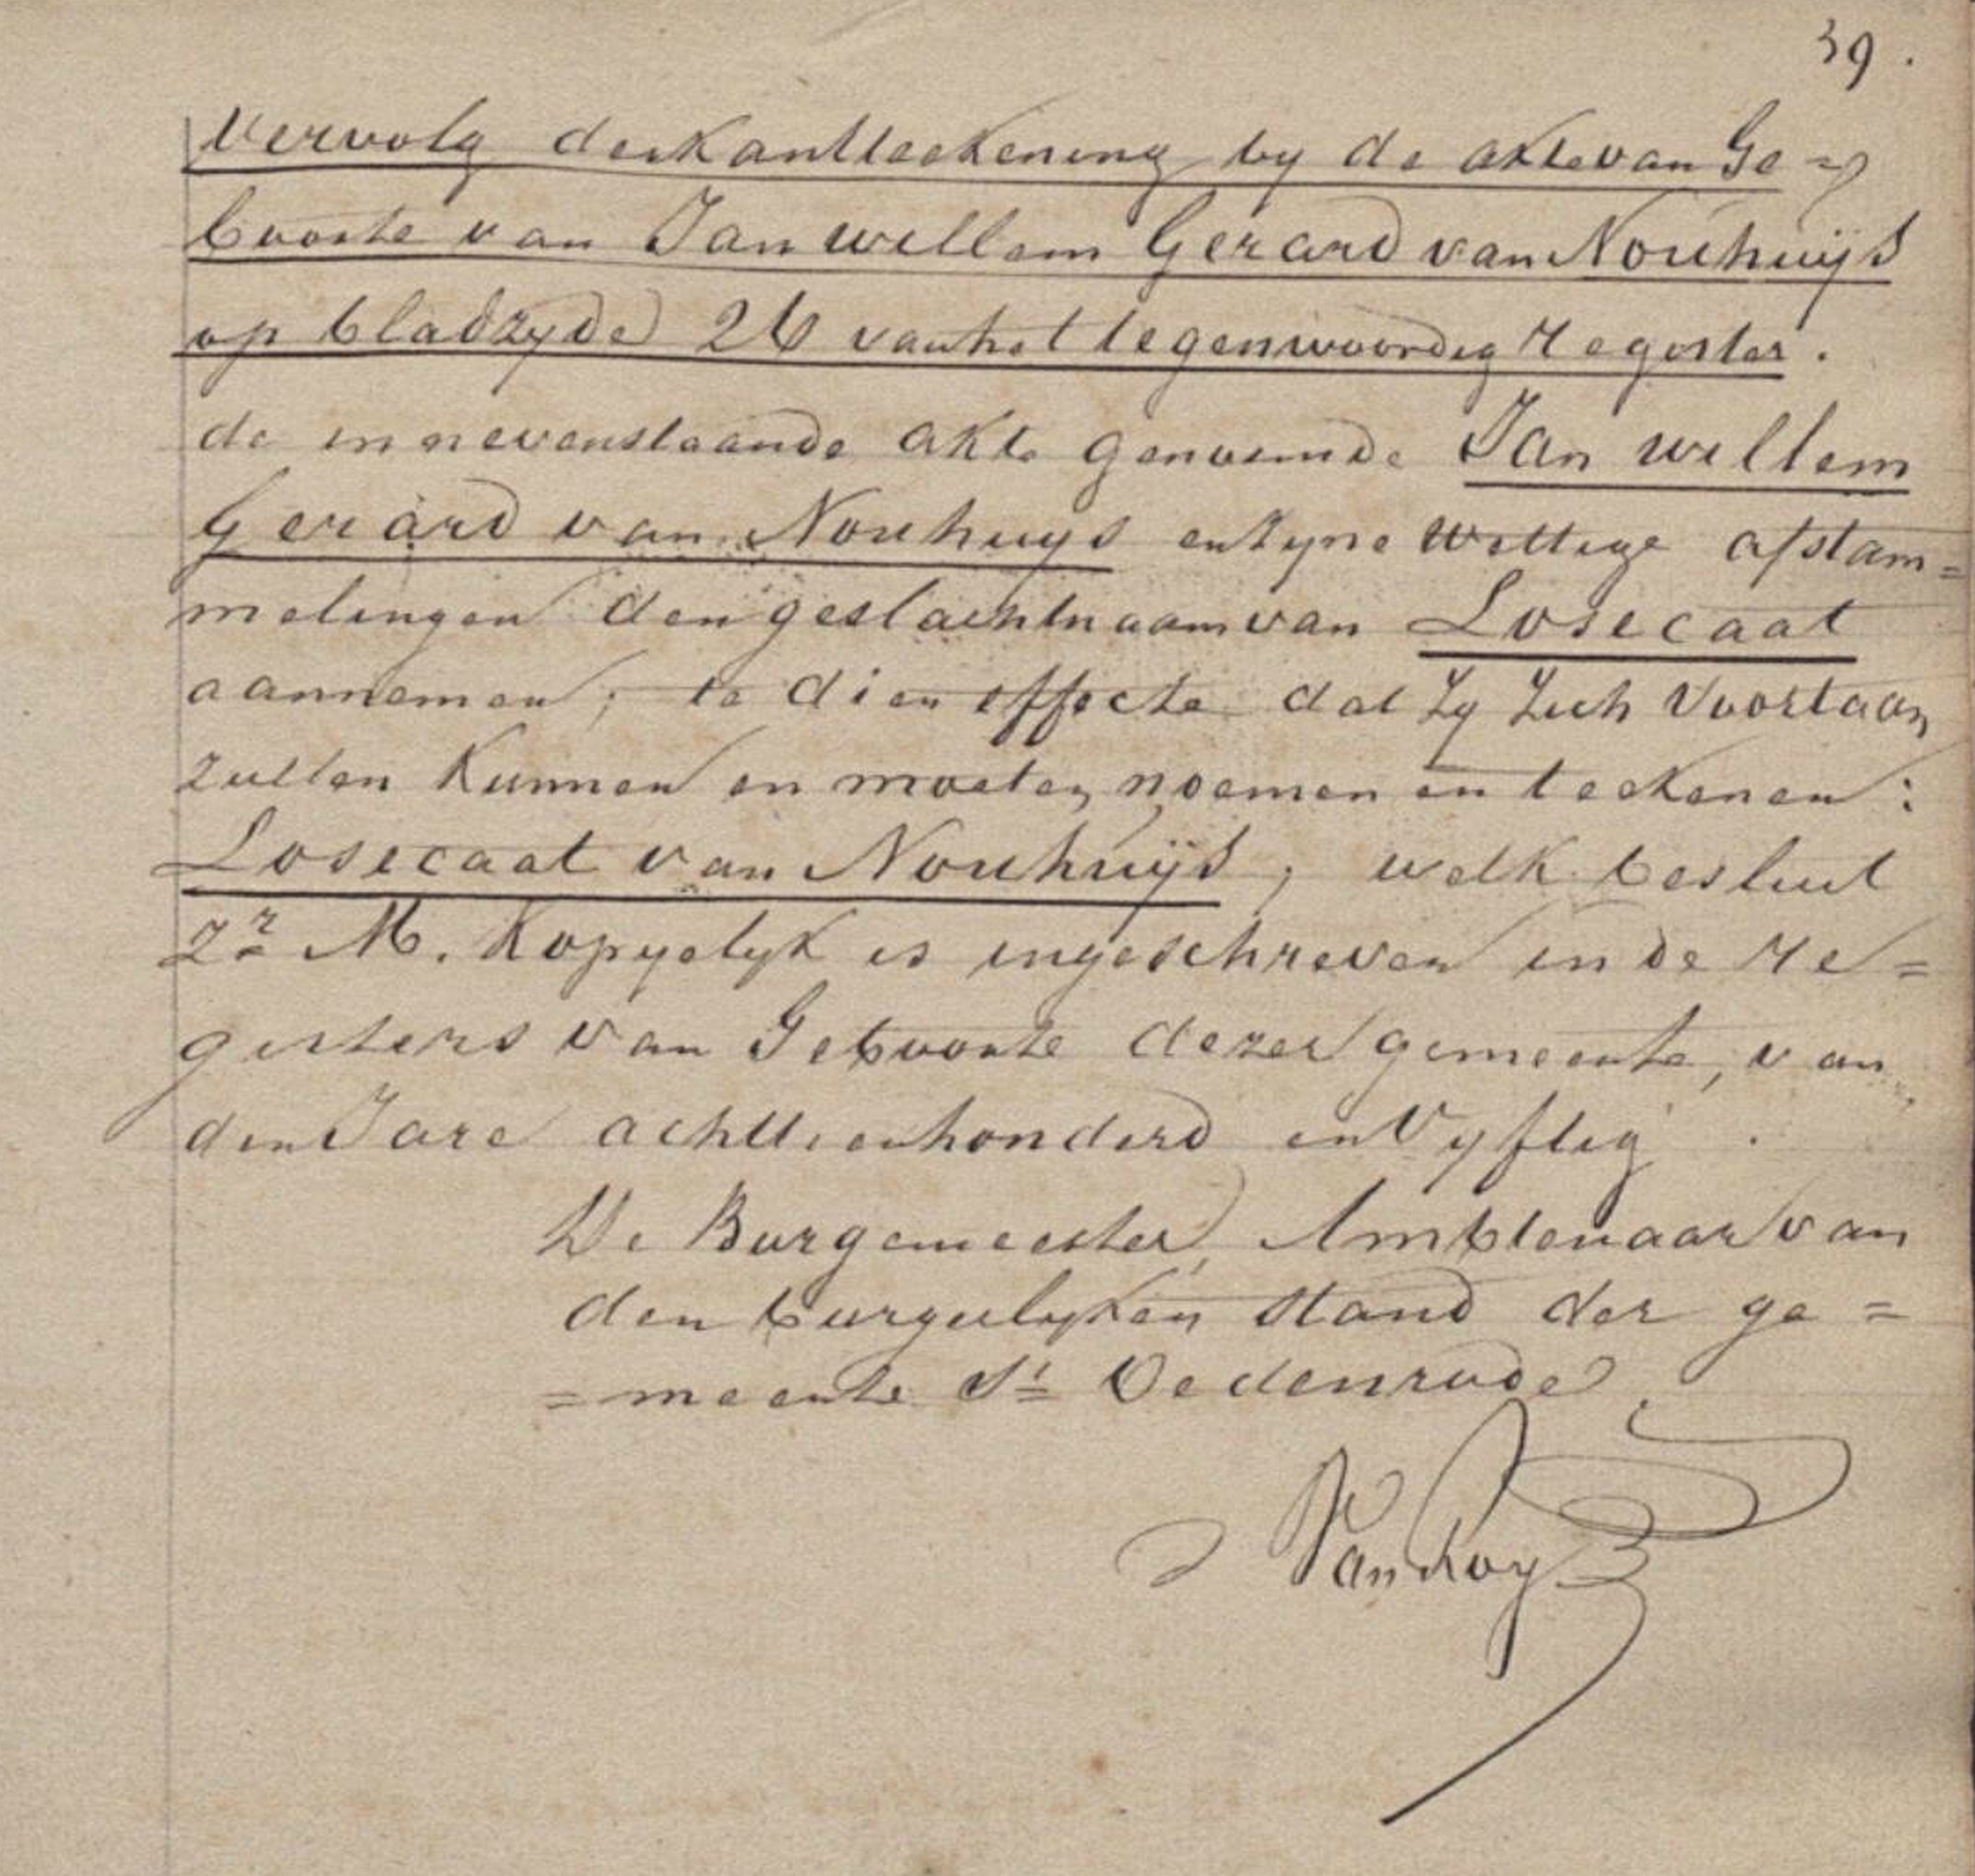 39.
Vervolg der kantteekening by de akte van Ge=
boorte van Jan Willem Gerard van Nouhuijs
op bladzyde 26 van het tegenwoordig register.
de in nevenstaande akte genoemde Jan Willem
Gerard van Nouhuys en zyne wettige afstam=
melingen den geslachtnaam van Losecaat
aannemen; te dien effecte dat zy zich voortaan
zullen kunnen en moeten noemen en teekenen:
Losecaat van Nouhuijs, welk besluit
Zr M. kopyelyk is ingeschreven in de re=
gisters van Geboorte dezer gemeente, van
den Jare achttienhonderd en vyftig.
De Burgemeester, Ambtenaar van
den burgerlyken stand der ge=
=meente St Oedenrode.
Van Roy